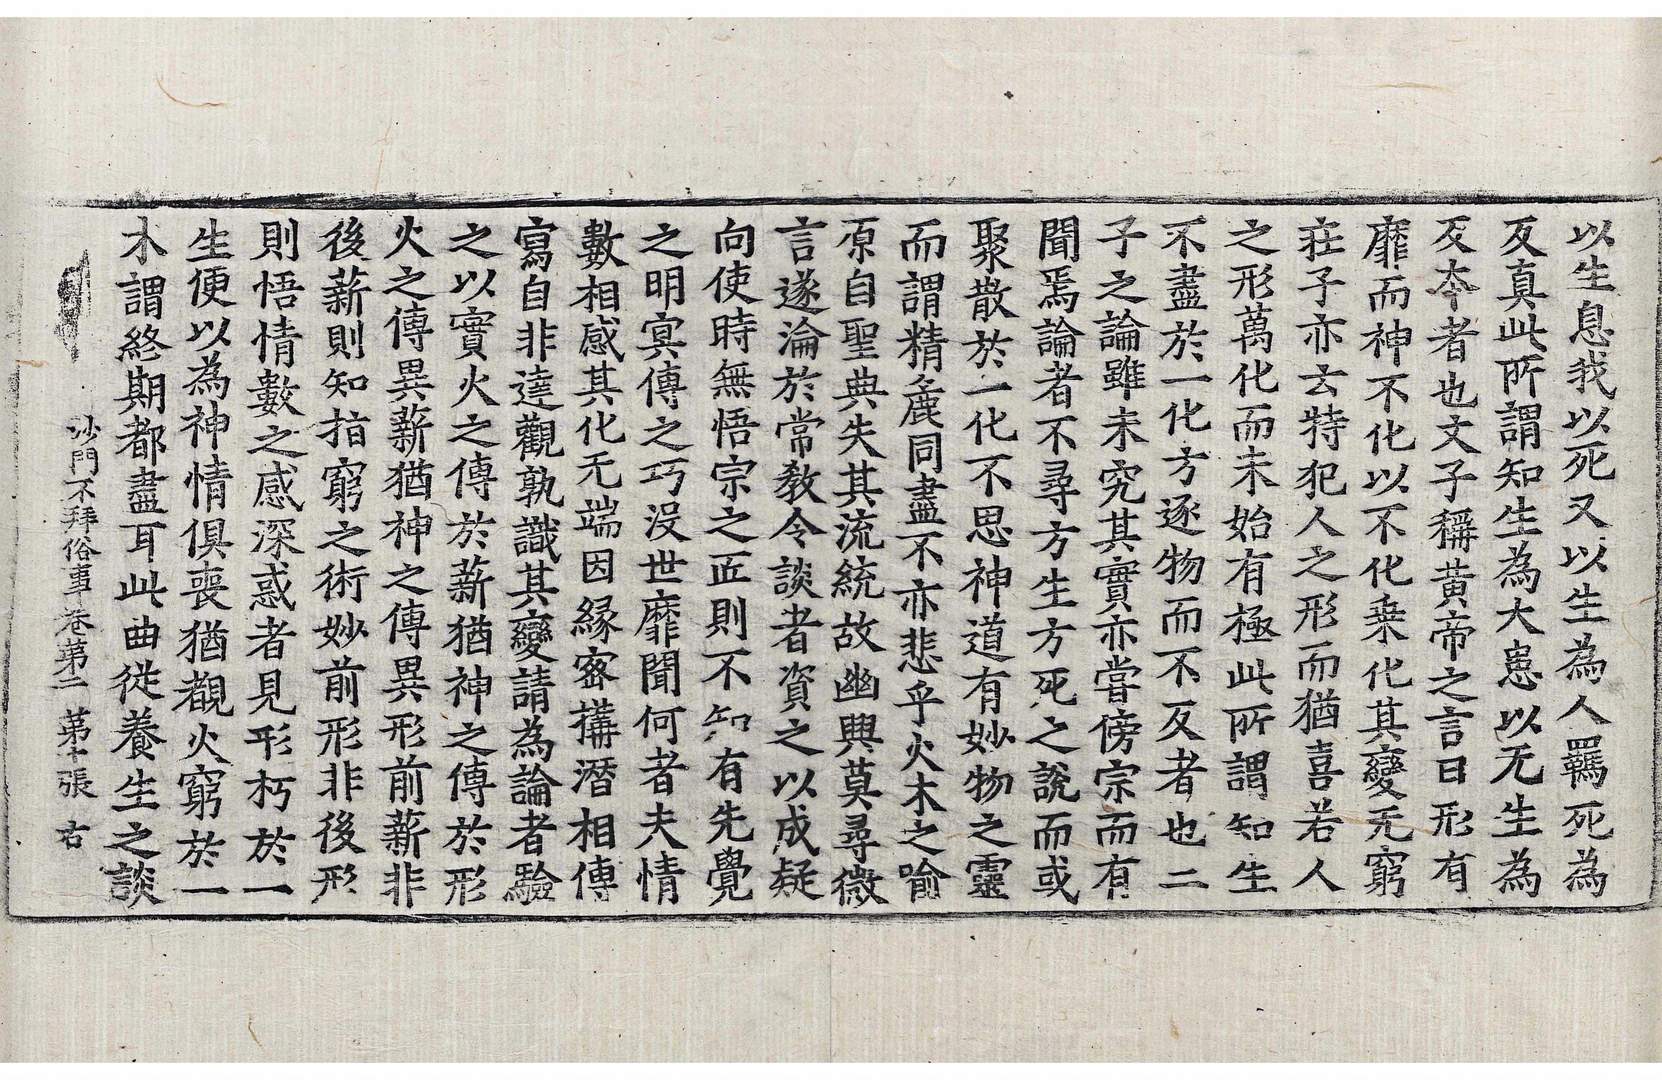 以生息我以死又以生為人羈死為
反真此所謂知生為大患以无生為
反本者也文子稱黃帝之言曰形有
靡而神不化以不化乗化其變无窮
莊子亦云特犯人之形而猶喜若人
之形萬化而未始有極此所謂知生
不盡於一化方逐物而不反者也二
子之論雖未究其實亦嘗傍宗而有
聞焉論者不尋方生方死之說而或
聚散於一化不思神道有妙物之靈
而謂精麁同盡不亦悲乎火木之喻
原自聖典失其流統故幽興莫尋微
言遂淪於常教令談者資之以成疑
向使時無悟宗之匠則不知有先覺
之明冥傳之巧没世靡聞何者夫情
數相感其化无端因緣密搆潛相傳
寫自非達觀孰識其變請為論者驗
之以實火之傳於薪猶神之傳於形
火之傳異薪猶神之傳異形前薪非
後薪則知指窮之術妙前形非後形
則悟情數之感深惑者見形朽於一
生便以為神情俱喪猶觀火窮於一
木謂終期都盡耳此曲從養生之談
沙門不拜俗事卷第二 第十張 右